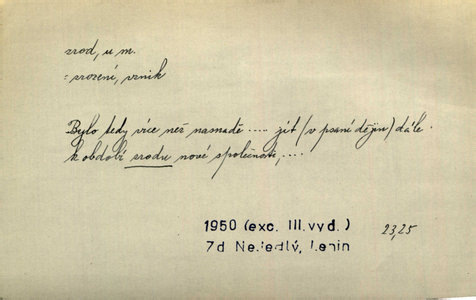 zrod, u m.
: zrození, vznik
Bylo tedy více než nasnadě ..... jít (v psaní dějin) dále
k období zrodu nové společnosti, ....
1950 (exc. III. vyd.)
Zd. Nejedlý, Lenin
23,25